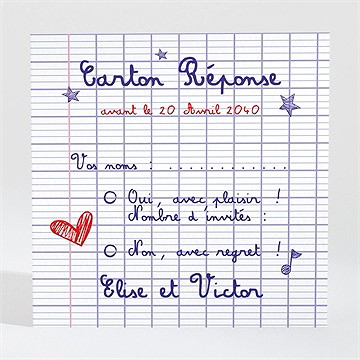 Carton Réponse
avant le 20 Avril 2040
Vos noms : . . . . . . . . . . . . .
Oui, avec plaisir !
Nombre d'invités :
Non, avec regret !
Elise et Victor